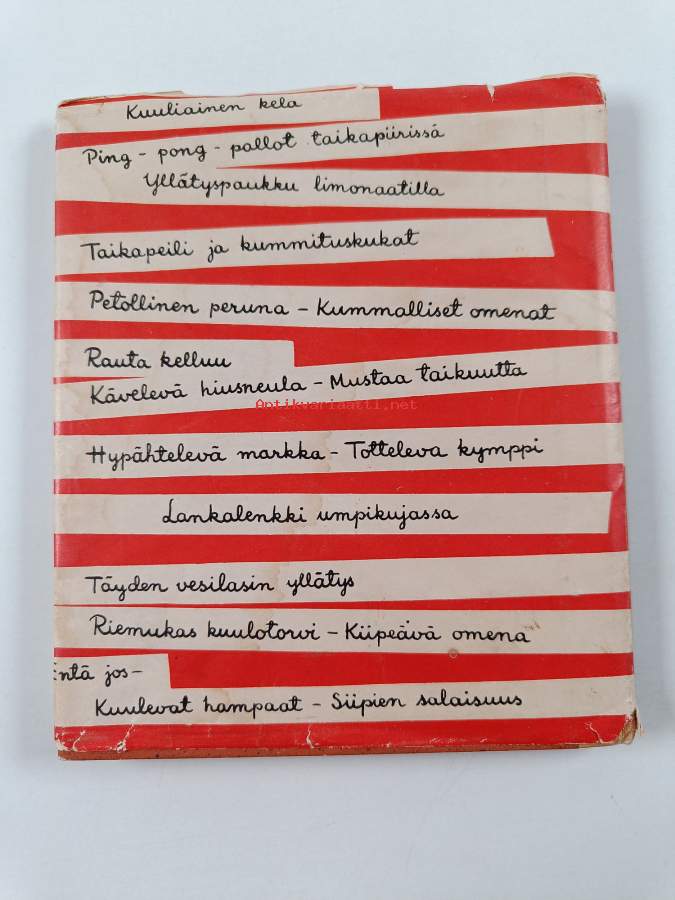 Kuuliainen kela
Ping - pong - pallot taikapiirissä
Yllätyspaukku limonaatilla
Taikapeili ja kummituskukat
Petollinen peruna - Kummalliset omenat
Rauta kelluu
Kävelevä hiusneula - Mustaa taikuutta
Antikvariaatti.net
Hypähtelevä markka - Totteleva kymppi
Lankalenkki umpikujassa
Täyden vesilasin yllätys
Riemukas kuulotorvi - Kiipeävä omena
Entä jos-
Kuulevat hampaat - Siipien salaisuus